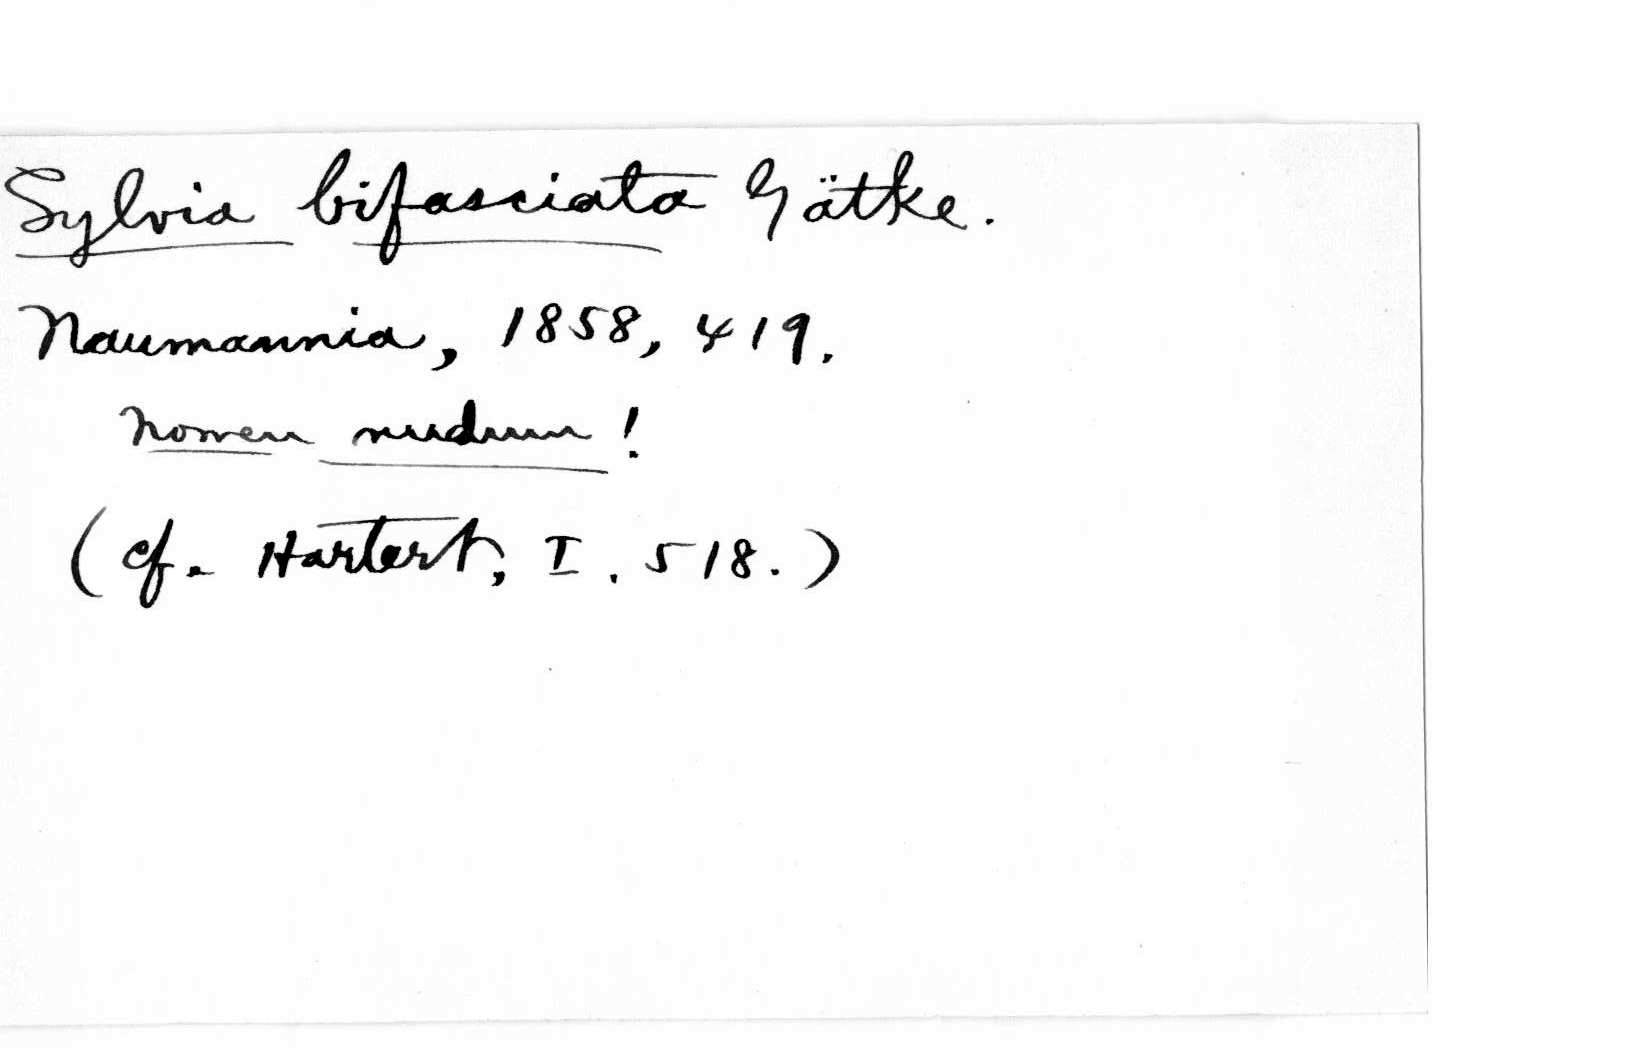 Sylvia bifasciata Gätke.
Naumannia, 1858, 419.
Nomen nudum!
(cf. Hartert, I. 518.)